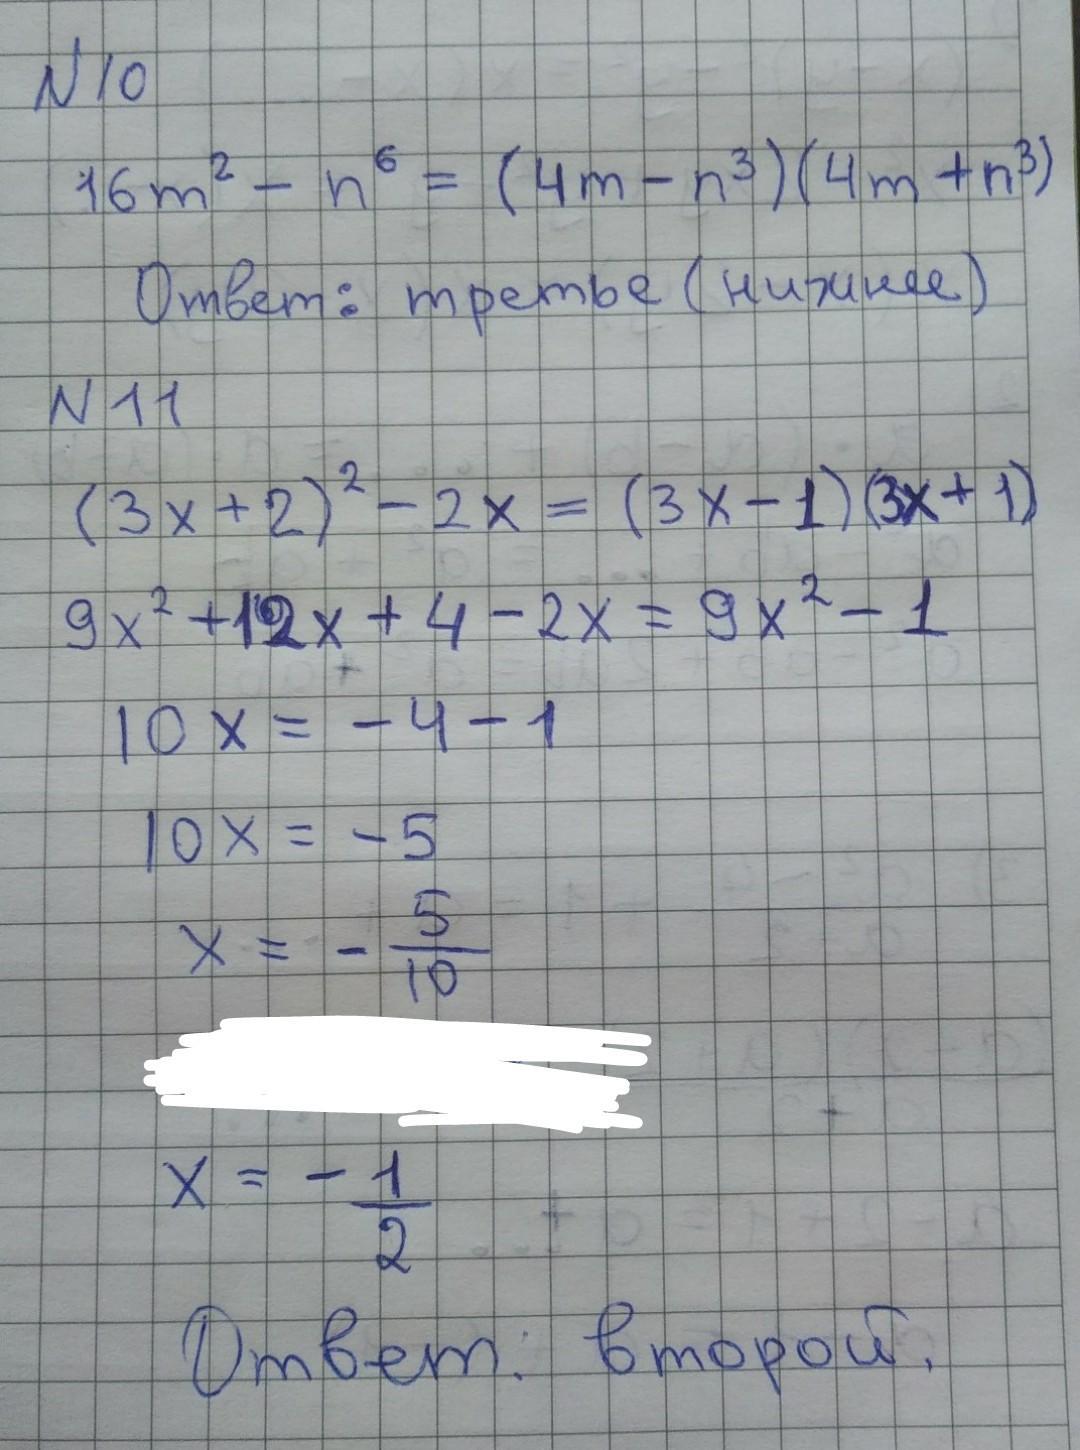 N 10
16m² - n⁶ = (4m - n³)(4m + n³)
Ответ: третье (нижнее)
N 11
(3x+2)² - 2x = (3x-1)(3x+1)
9x² + 12x + 4 - 2x = 9x² - 1
10x = -4 - 1
10x = -5
x = - 5/10
x = - 1/2
Ответ: второй.